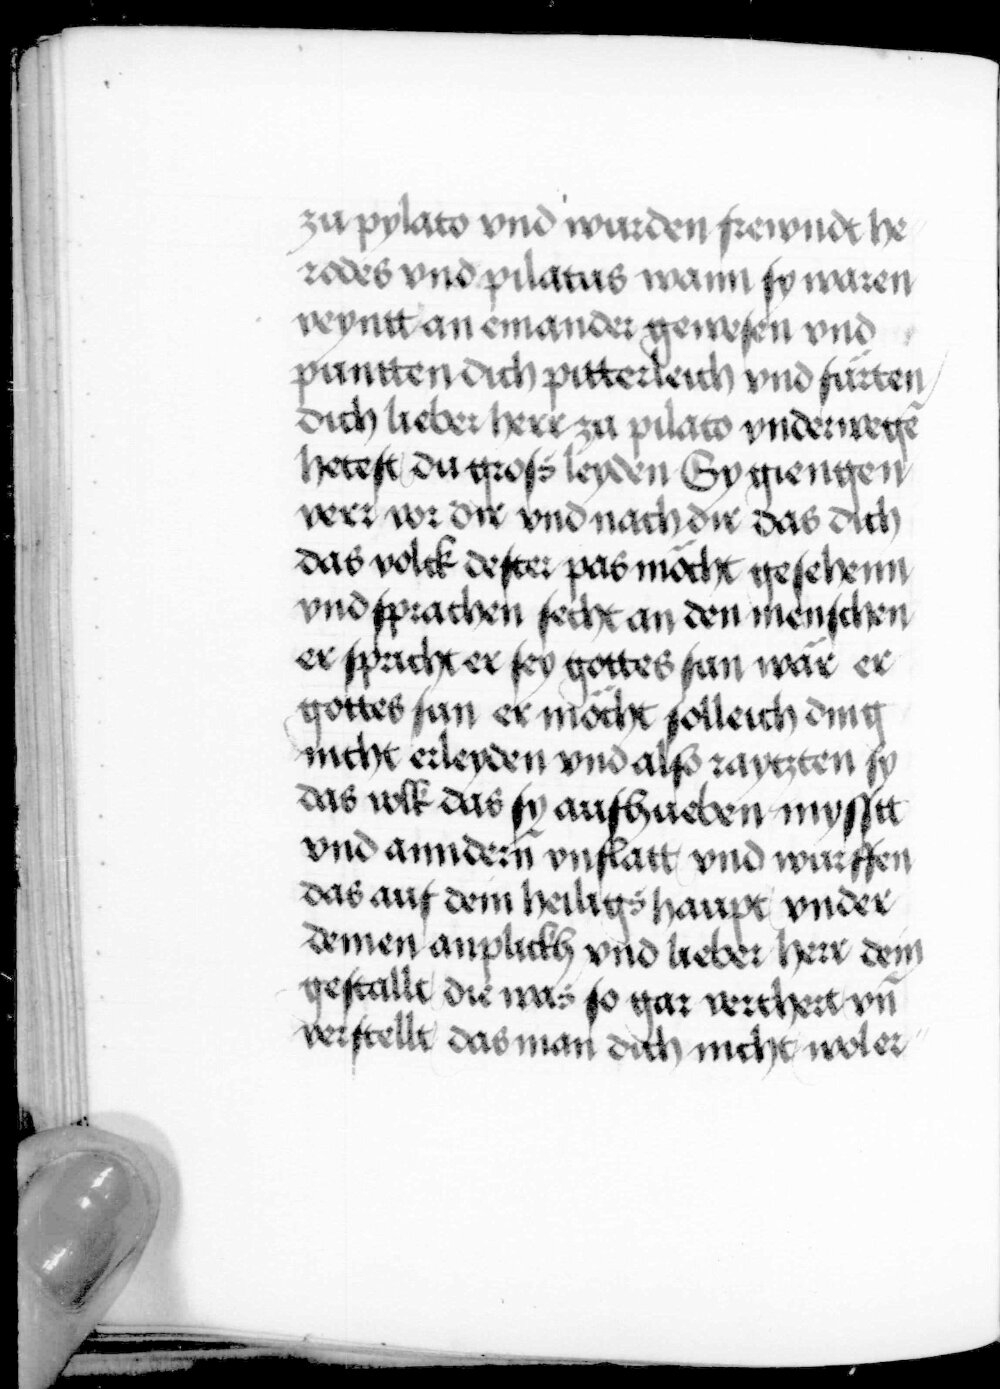 zu pylato vnd wurden frewndt he
rodes vnd pilatus wann sy waren
veyntt an einander gewesen vnd
puntten dich pitterleich vnd fürten
dich lieber herr zu pilato vnderwegē
hetest du gross leyden Sy giengen
verr vor dir vnd nach dir das dich
das volck dester pas möcht gesehenn
vnd sprachen secht an den menschen
er spricht er sey gottes sun wär er
gottes sun er möcht solleich ding
nicht erleyden vnd also raytzten sy
das volk das sy aufhueben mysstt
vnd anndern̄ vnflatt vnd wurffen
das auf dein heiligs haupt vnder
deinen anplickh vnd lieber herr dein
gestallt die was so gar verchert vn̄
verstellt das man dich nicht wol er